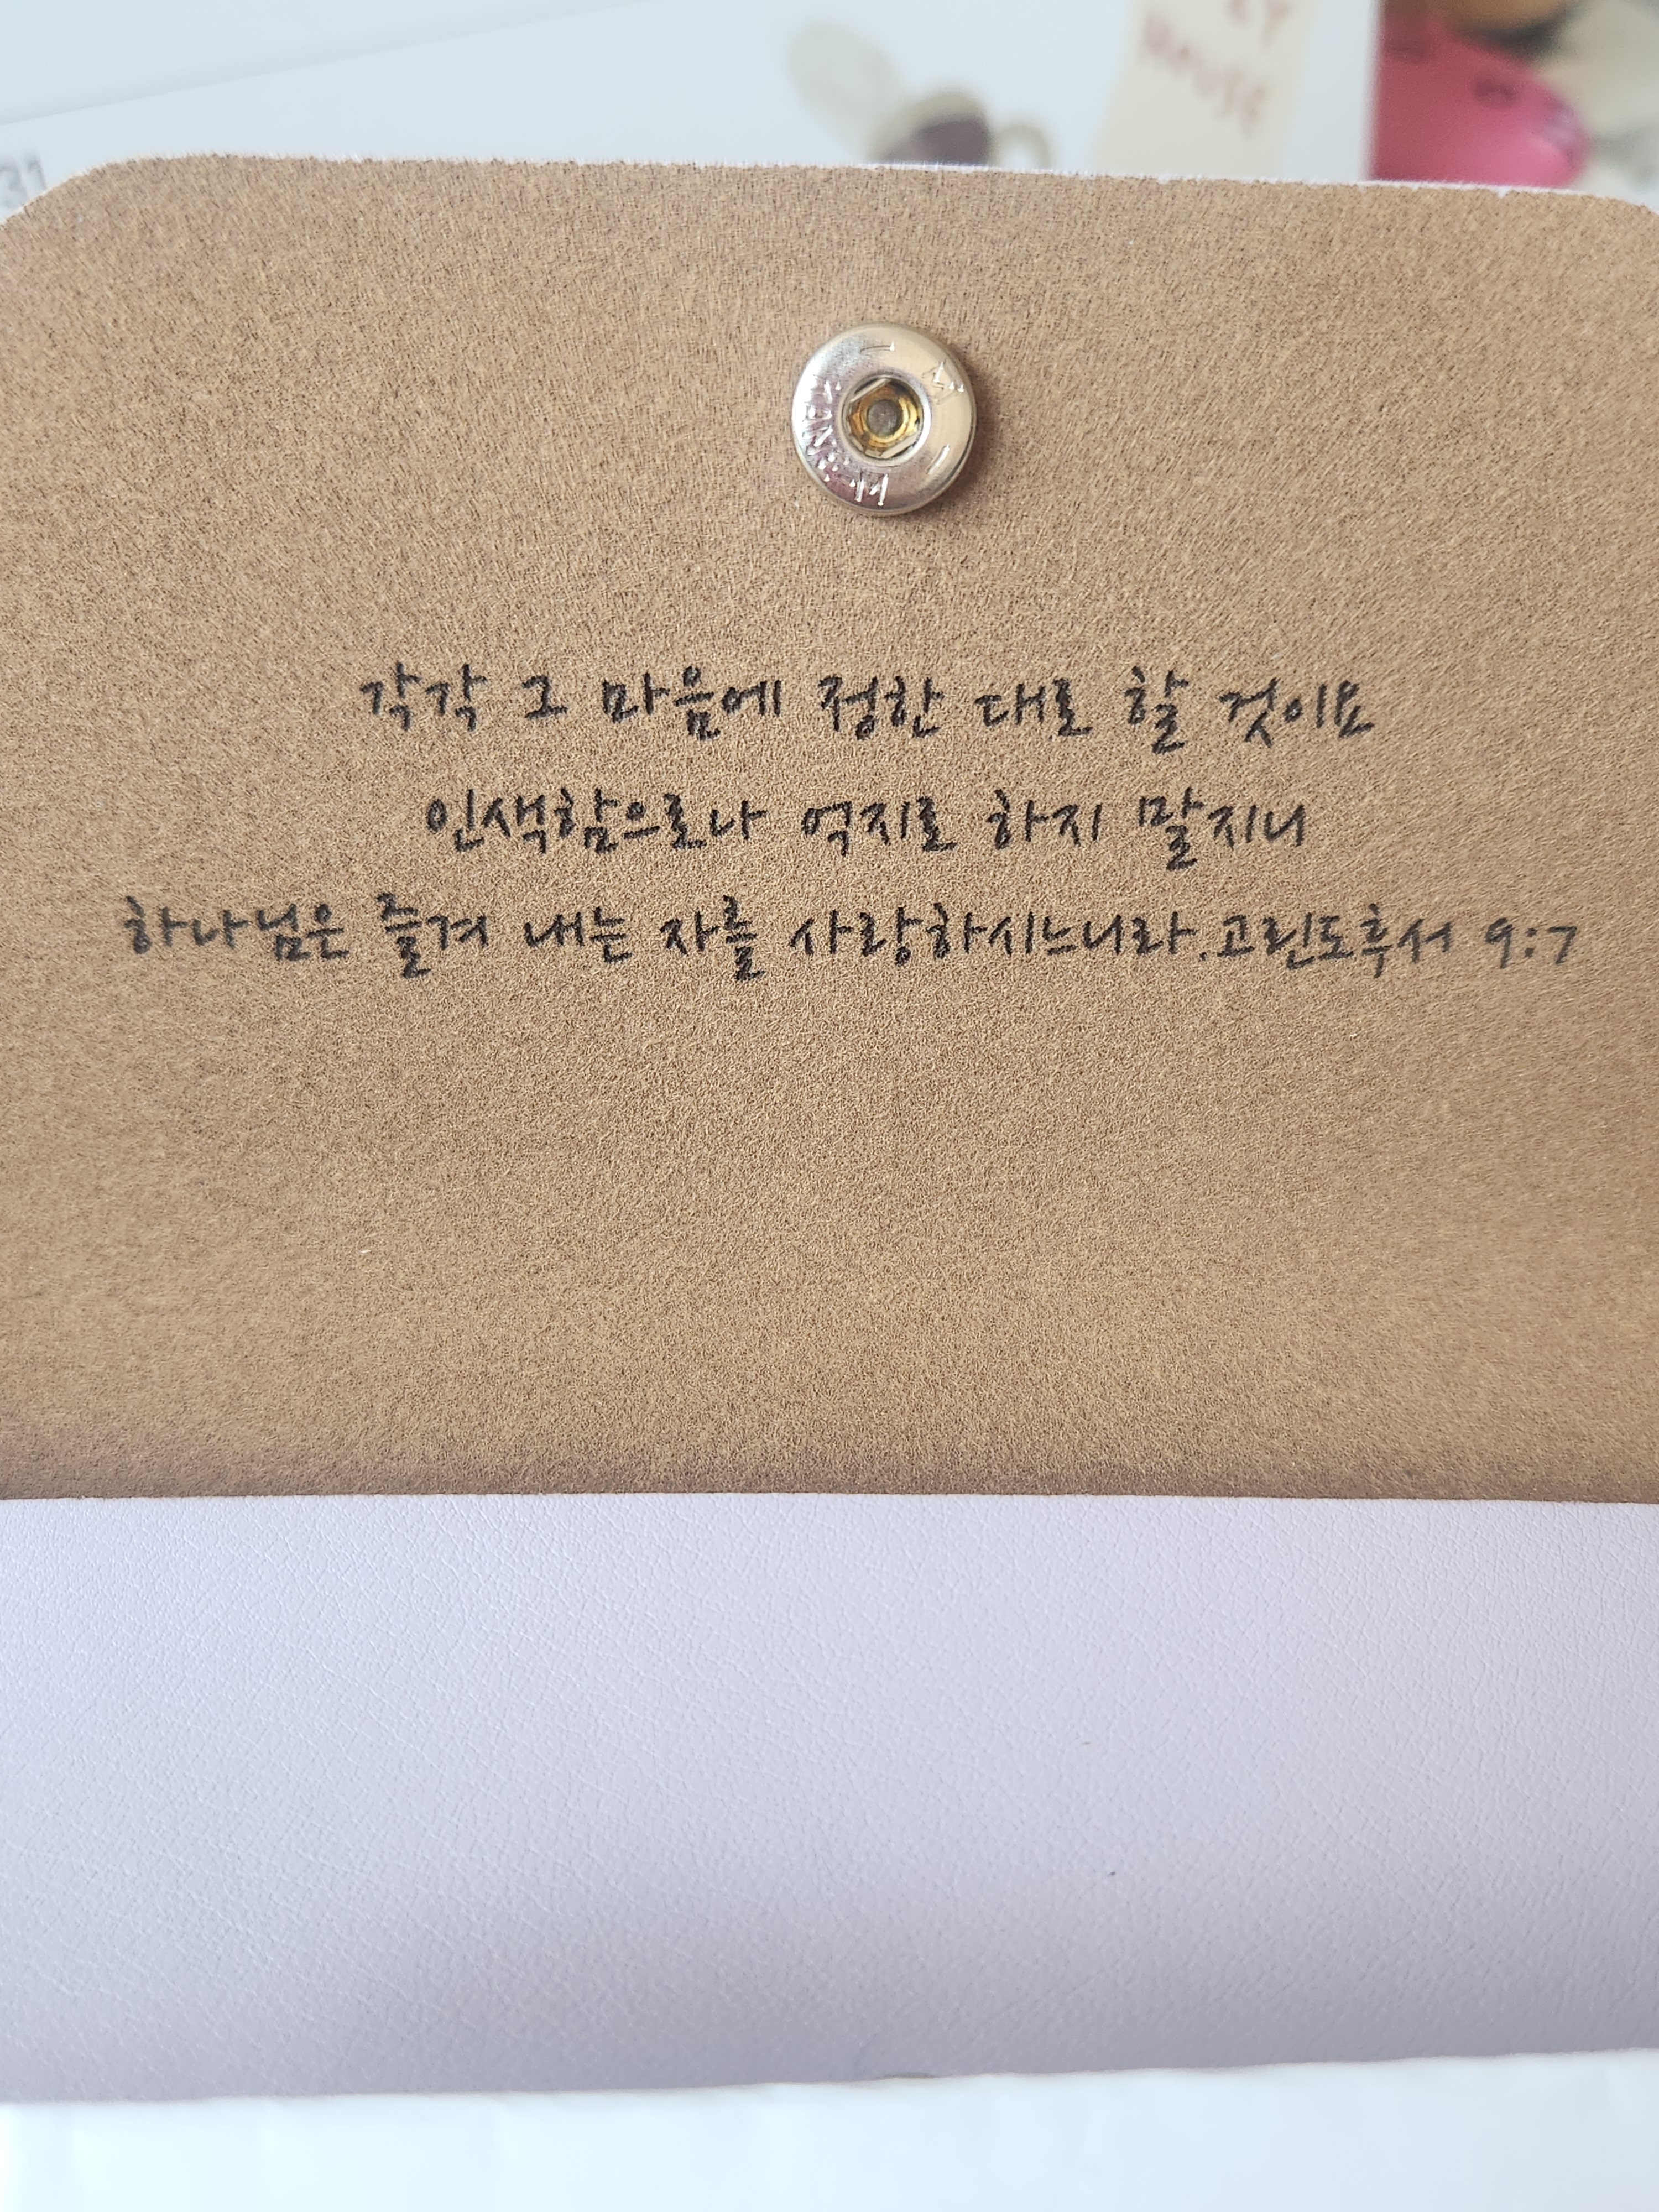 31
HOUSE
각각 그 마음에 정한 대로 할 것이요
인색함으로나 억지로 하지 말지니
하나님은 즐겨 내는 자를 사랑하시느니라.고린도후서 9:7